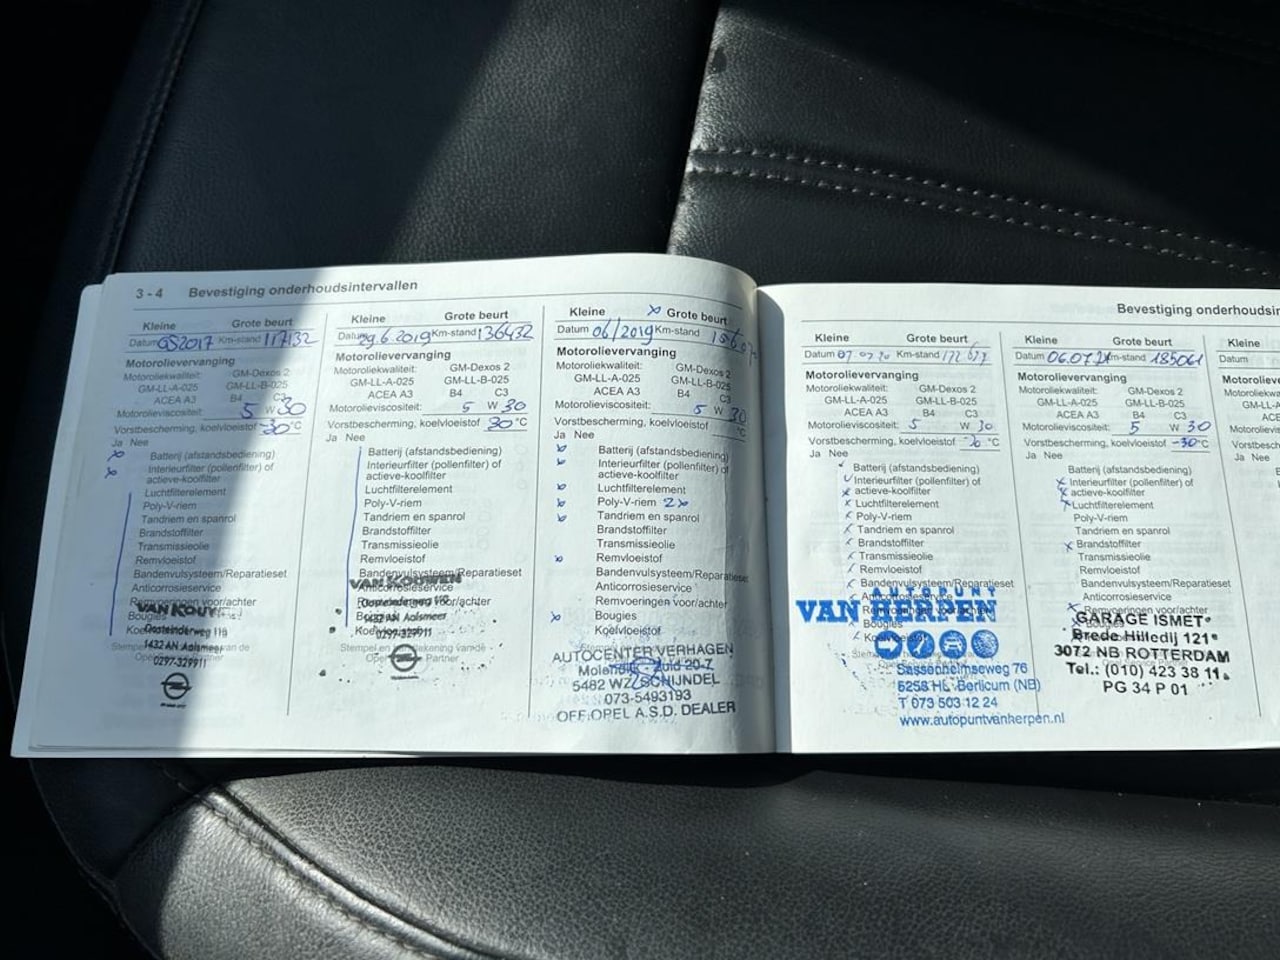 3 - 4 Bevestiging onderhoudsintervallen
Kleine Grote beurt
Datum Km-stand 117132
Motorolievervanging
Motoroliekwaliteit: GM-Dexos 2
GM-LL-A-025 GM-LL-B-025
ACEA A3 B4 C3
Motorolieviscositeit: 5 W 30
Vorstbescherming, koelvloeistof -30 °C
Ja Nee
Batterij (afstandsbediening)
Interieurfilter (pollenfilter) of
actieve-koolfilter
Luchtfilterelement
Poly-V-riem
Tandriem en spanrol
Brandstoffilter
Transmissieolie
Remvloeistof
Bandenvulsysteem/Reparatieset
Anticorrosieservice
Remvoeringen voor/achter
Bougies
VAN KOUW
Oosteinderweg 110
1432 AN Aalsmeer
0297-329911
Kleine Grote beurt
Datum 29.6.2019 Km-stand 136432
Motorolievervanging
Motoroliekwaliteit: GM-Dexos 2
GM-LL-A-025 GM-LL-B-025
ACEA A3 B4 C3
Motorolieviscositeit: 5 W 30
Vorstbescherming, koelvloeistof 30 °C
Ja Nee
Batterij (afstandsbediening)
Interieurfilter (pollenfilter) of
actieve-koolfilter
Luchtfilterelement
Poly-V-riem
Tandriem en spanrol
Brandstoffilter
Transmissieolie
Remvloeistof
Bandenvulsysteem/Reparatieset
Anticorrosieservice
Remvoeringen voor/achter
VAN KOUWEN
Oosteinderweg 110
1432 AN Aalsmeer
0297-329911
Stempel en handtekening van de
Opel Partner
Kleine x Grote beurt
Datum 06/2019 Km-stand
Motorolievervanging
Motoroliekwaliteit: GM-Dexos 2
GM-LL-A-025 GM-LL-B-025
ACEA A3 B4 C3
Motorolieviscositeit: 5 W 30
Vorstbescherming, koelvloeistof °C
Ja Nee
Batterij (afstandsbediening)
Interieurfilter (pollenfilter) of
actieve-koolfilter
Luchtfilterelement
Poly-V-riem 2x
Tandriem en spanrol
Brandstoffilter
Transmissieolie
Remvloeistof
Bandenvulsysteem/Reparatieset
Anticorrosieservice
Remvoeringen voor/achter
Bougies
Koelvloeistof
AUTOCENTER VERHAGEN
Zuid 20-7
5482 WZ SCHIJNDEL
073-5493193
OFF.OPEL A.S.D. DEALER
Bevestiging onderhoudsin
Kleine Grote beurt
Datum Km-stand
Motorolievervanging
Motoroliekwaliteit: GM-Dexos 2
GM-LL-A-025 GM-LL-B-025
ACEA A3 B4 C3
Motorolieviscositeit: 5 W 30
Vorstbescherming, koelvloeistof °C
Ja Nee
Batterij (afstandsbediening)
Interieurfilter (pollenfilter) of
actieve-koolfilter
Luchtfilterelement
Poly-V-riem
Tandriem en spanrol
Brandstoffilter
Transmissieolie
Remvloeistof
Bandenvulsysteem/Reparatieset
Anticorrosieservice
Remvoeringen voor/achter
Bougies
Koelvloeistof
VAN KERPEN
Sassenheimseweg 76
5258 HL Berlicum (NB)
T 073 503 12 24
www.autopuntvankerpen.nl
Kleine Grote beurt
Datum 06.07.21 Km-stand 185061
Motorolievervanging
Motoroliekwaliteit: GM-Dexos 2
GM-LL-A-025 GM-LL-B-025
ACEA A3 B4 C3
Motorolieviscositeit: 5 W 30
Vorstbescherming, koelvloeistof -30 °C
Ja Nee
Batterij (afstandsbediening)
Interieurfilter (pollenfilter) of
actieve-koolfilter
Luchtfilterelement
Poly-V-riem
Tandriem en spanrol
Brandstoffilter
Transmissieolie
Remvloeistof
Bandenvulsysteem/Reparatieset
Anticorrosieservice
Remvoeringen voor/achter
Bougies
GARAGE ISMET
Brede Hilledij 121
3072 NB ROTTERDAM
Tel.: (010) 423 38 11
PG 34 P 01
Kleine
Datum
Motorolieve
Motoroliekwa
GM-LL-A
ACE
Motorolievis
Vorstbesch
Ja Nee